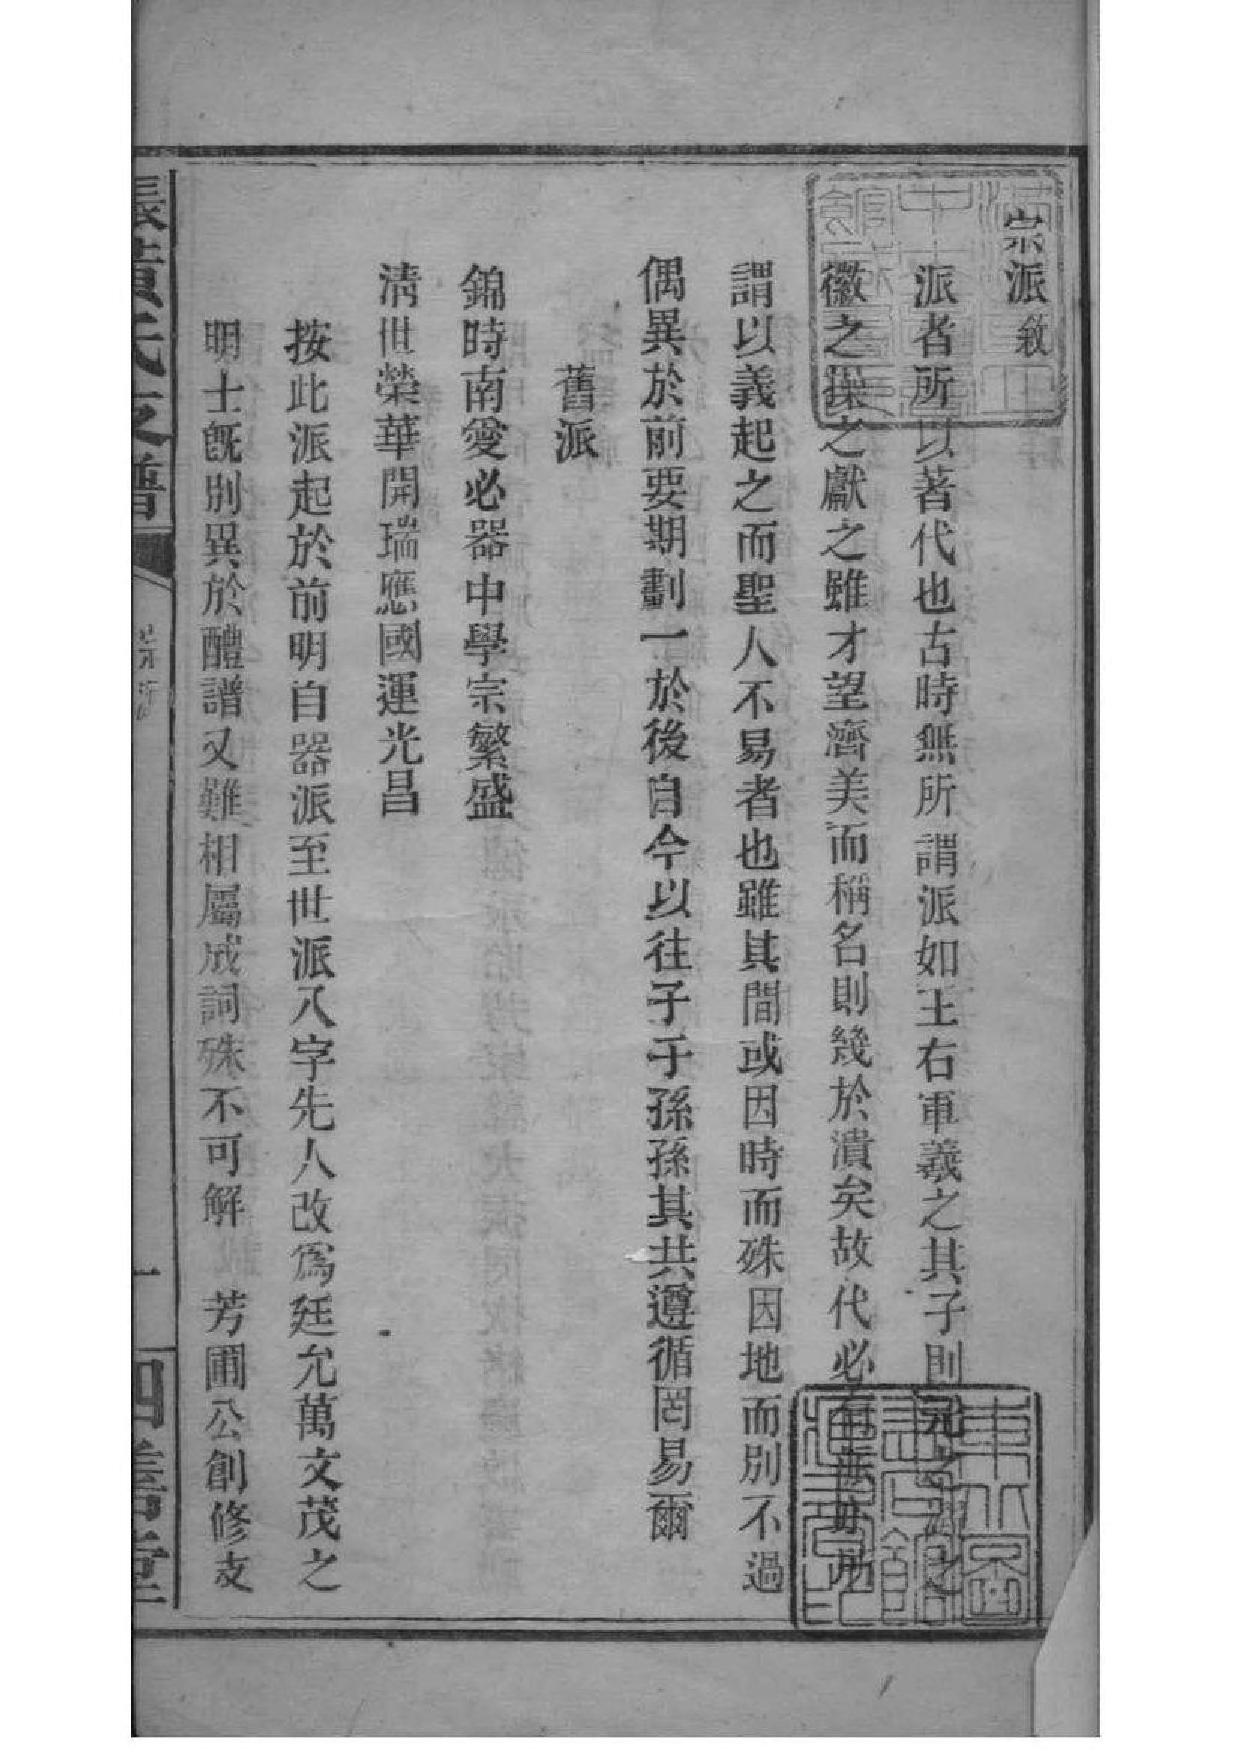 宗派敘
派者所以著代也古時無所謂派如王右軍羲之其子則
徽之操之獻之雖才望濟美而稱名則幾於瀆矣故代必
謂以義起之而聖人不易者也雖其間或因時而殊因地而別不過
偶異於前要期劃一於後自今以往子子孫孫其共遵循罔易爾
舊派
錦時南愛必器中學宗繁盛
淸世榮華開瑞應國運光昌
按此派起於前明自器派至世派八字先人改爲廷允萬文茂之
明士旣刖異於醴譜又難相屬成詞殊不可解 芳圃公創修支
氏支譜
一
四善堂